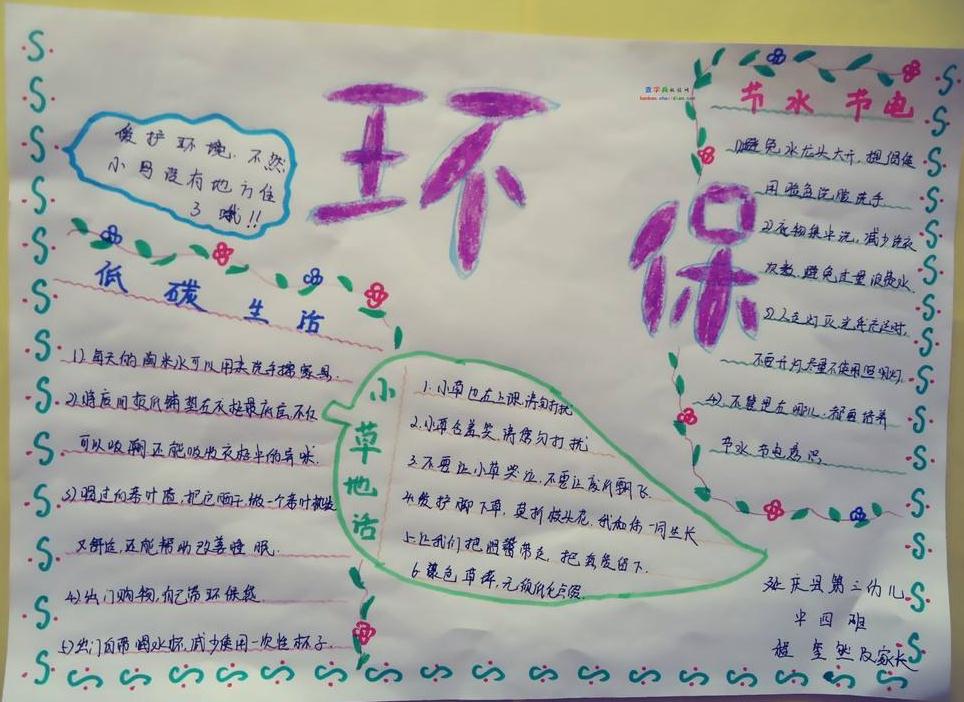 环保
爱护环境，不然
小鸟没有地方住
了哦!!
低碳生活
1).每天的淘米水可以用来洗手擦家具.
2).将废旧报纸铺垫在衣柜最底层不仅
可以吸潮还能吸收衣柜中的异味.
3)喝过的茶叶渣,把它晒干,做一个茶叶枕头
又舒适,还能帮助改善睡眠.
4)出门购物,自己带环保袋
5)出门自带喝水杯,减少使用一次性杯子.
小草地话
1.小草正在上课,请勿打扰
2.小草含羞笑,请您勿打扰
3.不要让小草哭泣,不要让废片飘飞.
4.爱护脚下草,莫折枝头花,我和你一同生长
5.让我们把脚带走,把真爱留下.
6.绿色草坪,无须你化点缀.
节水 节电
1)避免水龙头大开,提倡使
用脸盆洗脸洗手
2)衣物集中洗,减少洗衣
次数,避免过量浪费水.
3)人走灯灭,光线充足时,
不要开灯尽量不使用照明灯.
4).不管是在哪儿.都要培养
节水节电意识
延庆县第三幼儿
中四班
程 然及家长